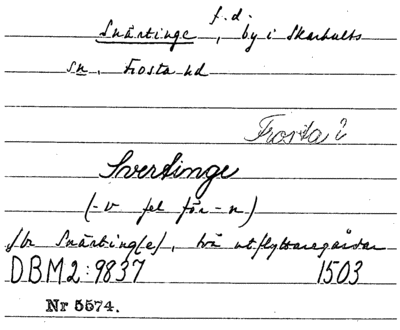 f.d.
Snärtinge, by i Skarhults
sn, Frosta hd
Frosta?
Svertinge
(-v fel för -n)
Snärting(e), två utflyttaregårdar
DBM2:9837 1503
Nr 5574.